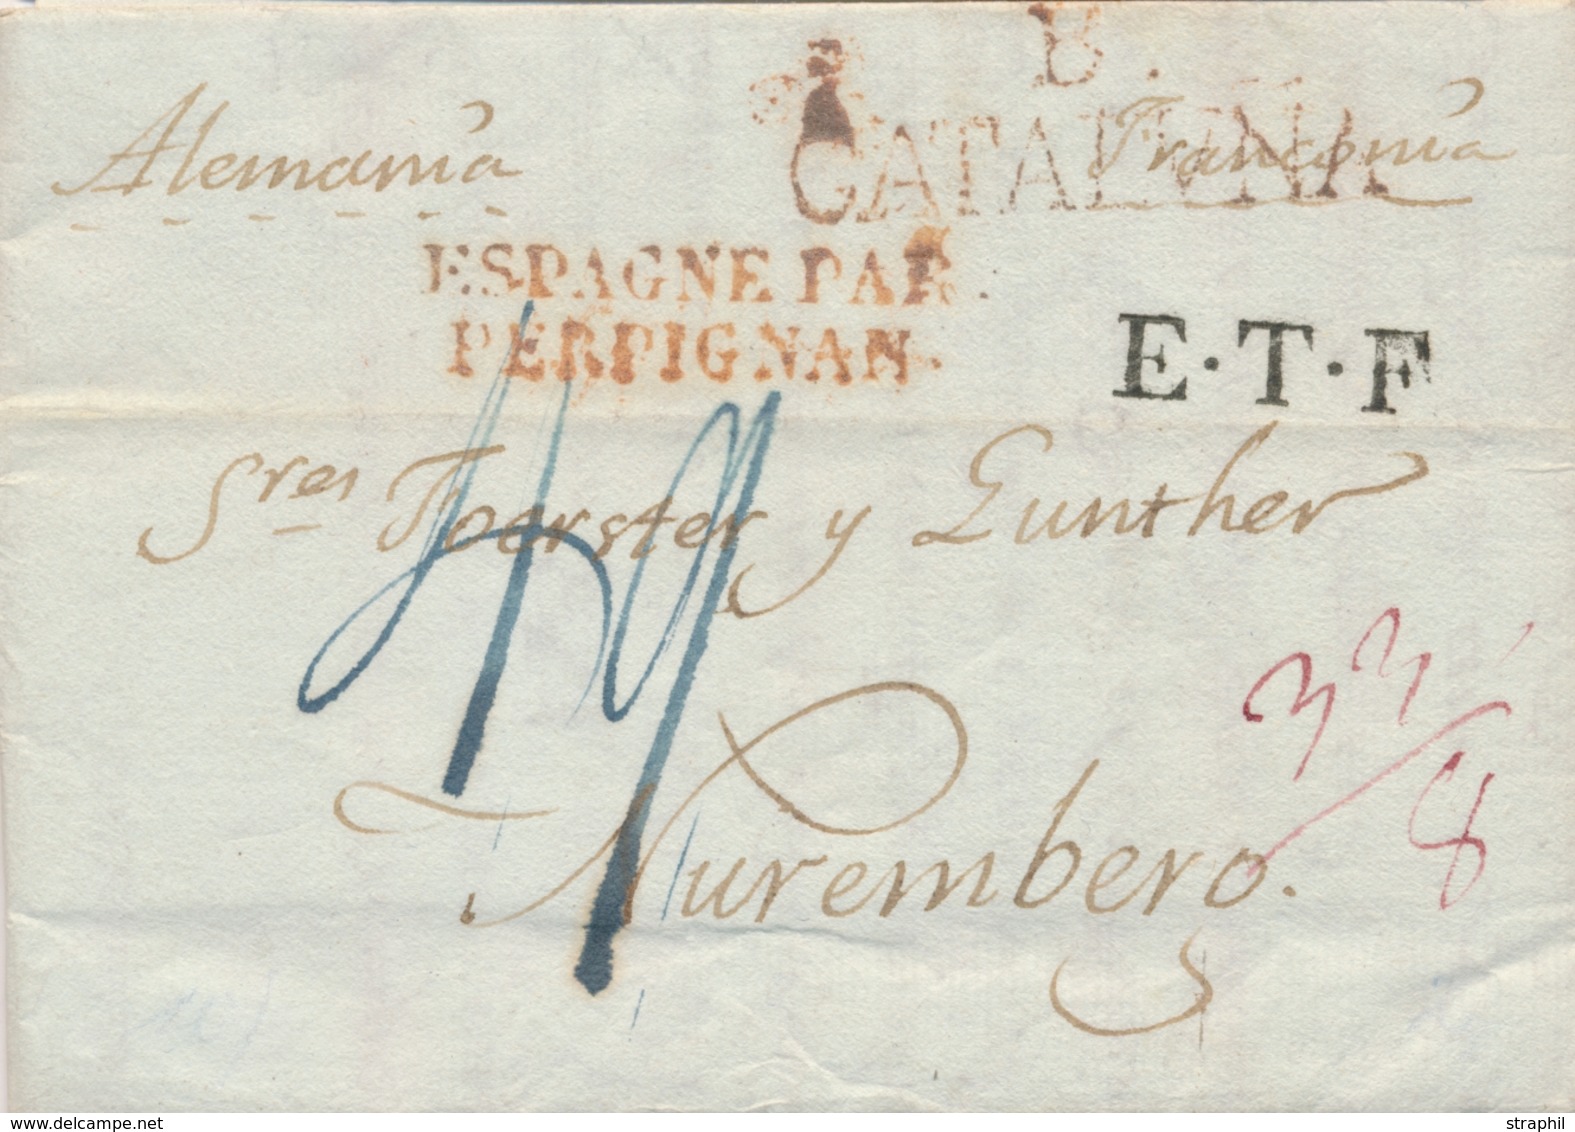 B.
CATALUÑA
Alemania
Franconia
ESPAGNE PAR
PERPIGNAN.
E·T·F
Sres Foerster y Gunther
Nuremberg.
49
33/8
© straphil
STRAPHIL